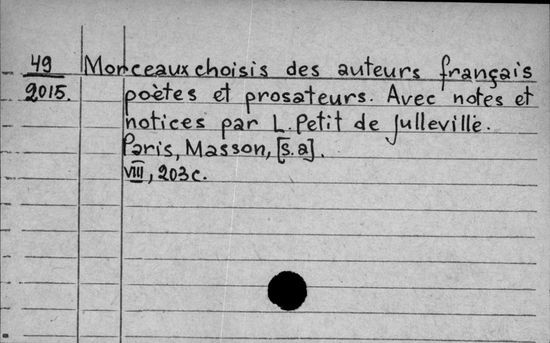 49 Morceaux choisis des auteurs français
2015. poètes et prosateurs. Avec notes et
notices par L. Petit de Julleville.
Paris, Masson, [s.a].
VIII, 203c.